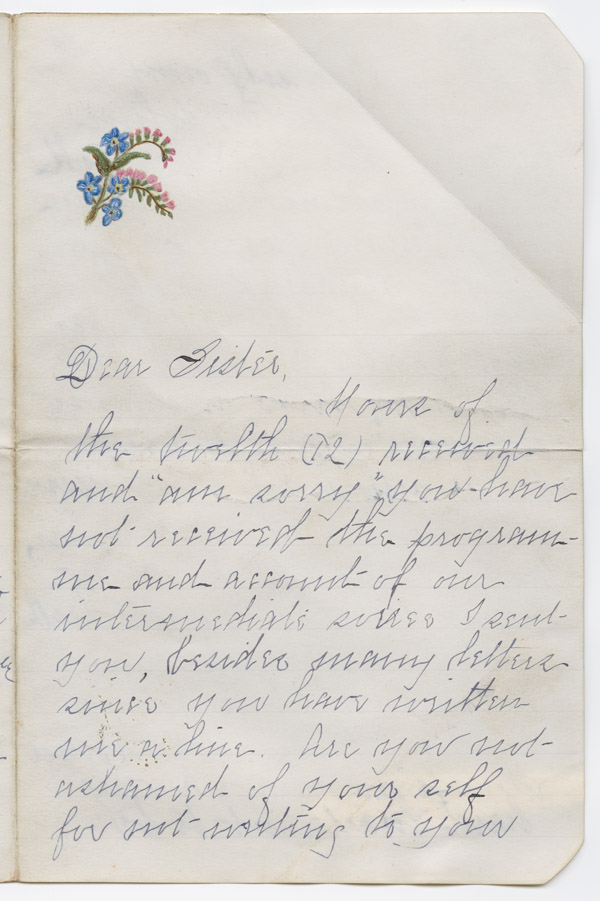 Dear Sister,
Yours of
the twelfth (12) received
and "am sorry" you have
not received the program-
me and account of our
intermediate soiree I sent
you, besides many letters
since you have written
me a line. Are you not
ashamed of your self
for not writing to your